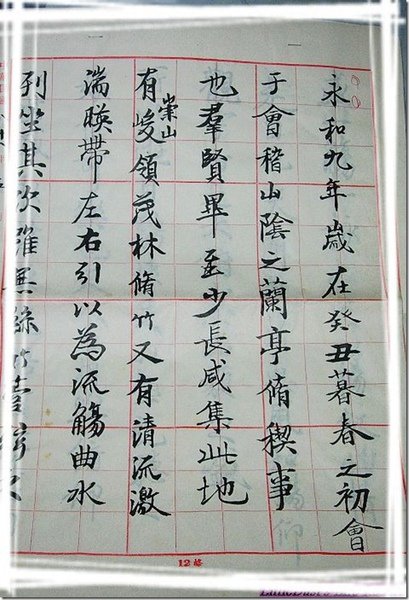 永和九年歲在癸丑暮春之初會
于會稽山陰之蘭亭脩禊事
也羣賢畢至少長咸集此地
有崇山峻領茂林脩竹又有清流激
湍暎帶左右引以為流觴曲水
列坐其次雖無絲竹管
12